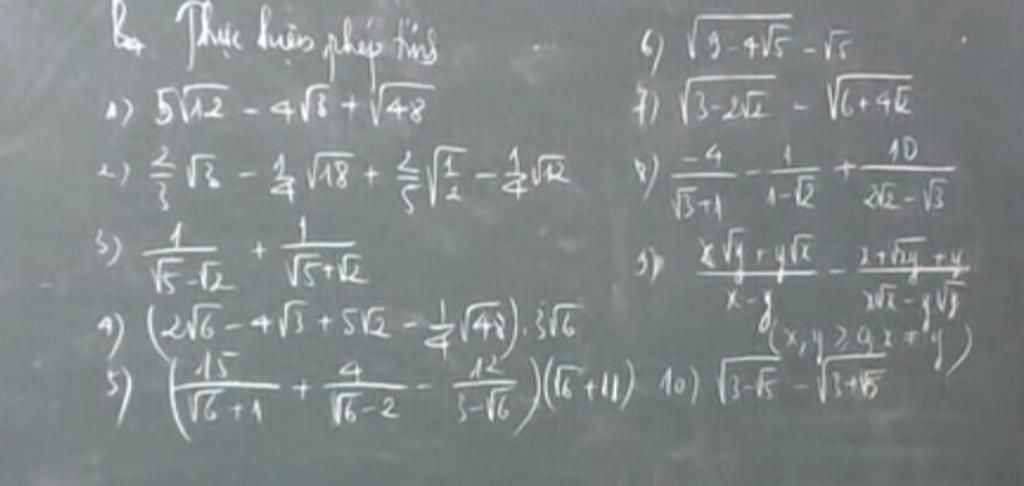 B. Thực hiện phép tính
1) 5√12 - 4√3 + √48
2) 2/3 √3 - 1/4 √18 + 2/5 √(1/2) - 1/4 √12
3) 1/(√5-√2) + 1/(√5+√2)
4) (2√6 - 4√3 + 5√2 - 1/4 √48) . 3√6
5) (15/(√6+1) + 4/(√6-2) - 12/(3-√6)) (√6+11)
6) √(9-4√5) - √5
7) √(3-2√2) - √(6+4√2)
8) -4/(√3+1) - 1/(1-√2) + 10/(2√2-√3)
9) (x√y + y√x)/(x-y) - (x+√xy+y)/(x√x - y√y)
10) √(3-√5) - √(3+√5)